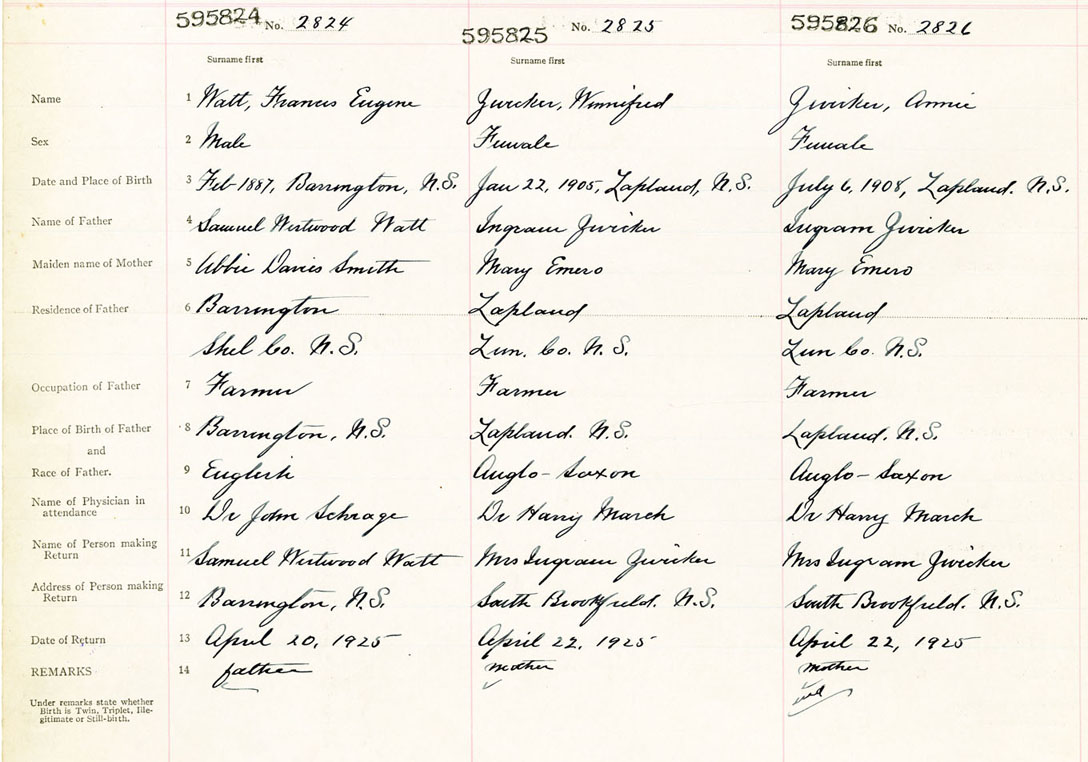 595824 No. 2824 595825 No. 2825 595826 No. 2826
Surname first Surname first Surname first
Name 1 Watt, Francis Eugene Zwicker, Winnifred Zwicker, Annie
Sex 2 Male Female Female
Date and Place of Birth 3 Feb 1887, Barrington, N.S. Jan 22, 1905, Lapland, N.S. July 6, 1908, Lapland. N.S.
Name of Father 4 Samuel Westwood Watt Ingram Zwicker Ingram Zwicker
Maiden name of Mother 5 Abbie Davis Smith Mary Emero Mary Emero
Residence of Father 6 Barrington Lapland Lapland
Shel Co. N.S. Lun. Co. N.S. Lun Co. N.S.
Occupation of Father 7 Farmer Farmer Farmer
Place of Birth of Father 8 Barrington, N.S. Lapland. N.S. Lapland. N.S.
and
Race of Father. 9 English Anglo-Saxon Anglo-Saxon
Name of Physician in
attendance 10 Dr John Schrage Dr Harry March Dr Harry March
Name of Person making
Return 11 Samuel Westwood Watt Mrs Ingram Zwicker Mrs Ingram Zwicker
Address of Person making
Return 12 Barrington, N.S. South Brookfield. N.S. South Brookfield. N.S.
Date of Return 13 April 20, 1925 April 22, 1925 April 22, 1925
REMARKS 14 father mother mother
Under remarks state whether
Birth is Twin, Triplet, Ille-
gitimate or Still-birth.